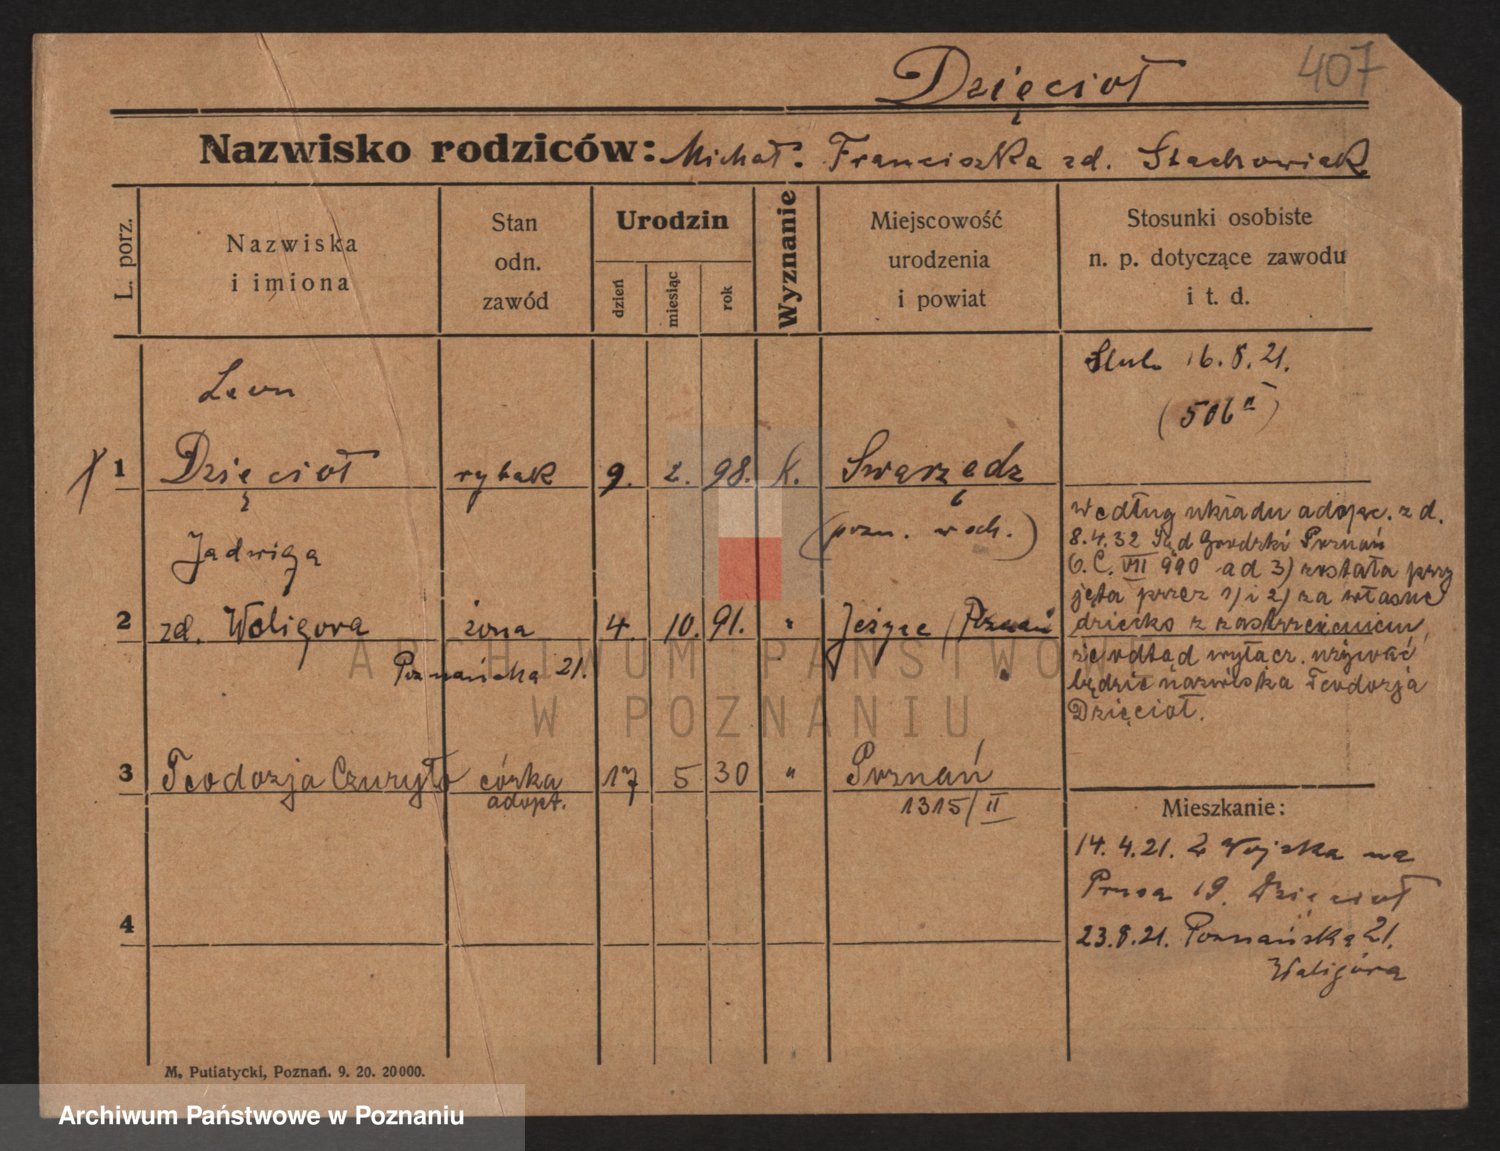 407
Dzięcioł
Nazwisko rodziców: Michał. Franciszka zd. Stachowiak
L. porz.
Nazwiska
i imiona
Stan
odn.
zawód
Urodzin
dzień
miesiąc
rok
Wyznanie
Miejscowość
urodzenia
i powiat
Stosunki osobiste
n. p. dotyczące zawodu
i t. d.
Leon
1 Dzięcioł rybak 9. 2. 98. K. Swarzędz
(pozn. wsch.)
Ślub 16.8.21.
(506 II)
Jadwiga
2 zd. Waligora żona 4. 10. 91. " Jeżyce / Poznań
Poznańska 21.
według układu adopc. z d.
8.4.32 Sąd Grodzki Poznań
6. C. VII 990 ad 3) została przy
jęta przez 1) i 2) za własne
dziecko z zastrzeżeniem,
że odtąd wyłącz. używać
będzie nazwiska Teodozja
Dzięcioł.
3 Teodozja Czuryło córka 17 5 30 " Poznań
adopt.
1315/II
4
Mieszkanie:
14.4.21. Z Wojska na
Prusa 19. Dzięcioł
23.8.21. Poznańska 21.
Waligóra
M. Putiatycki, Poznań. 9. 20. 20000.
ARCHIWUM PAŃSTWOWE
W POZNANIU
Archiwum Państwowe w Poznaniu